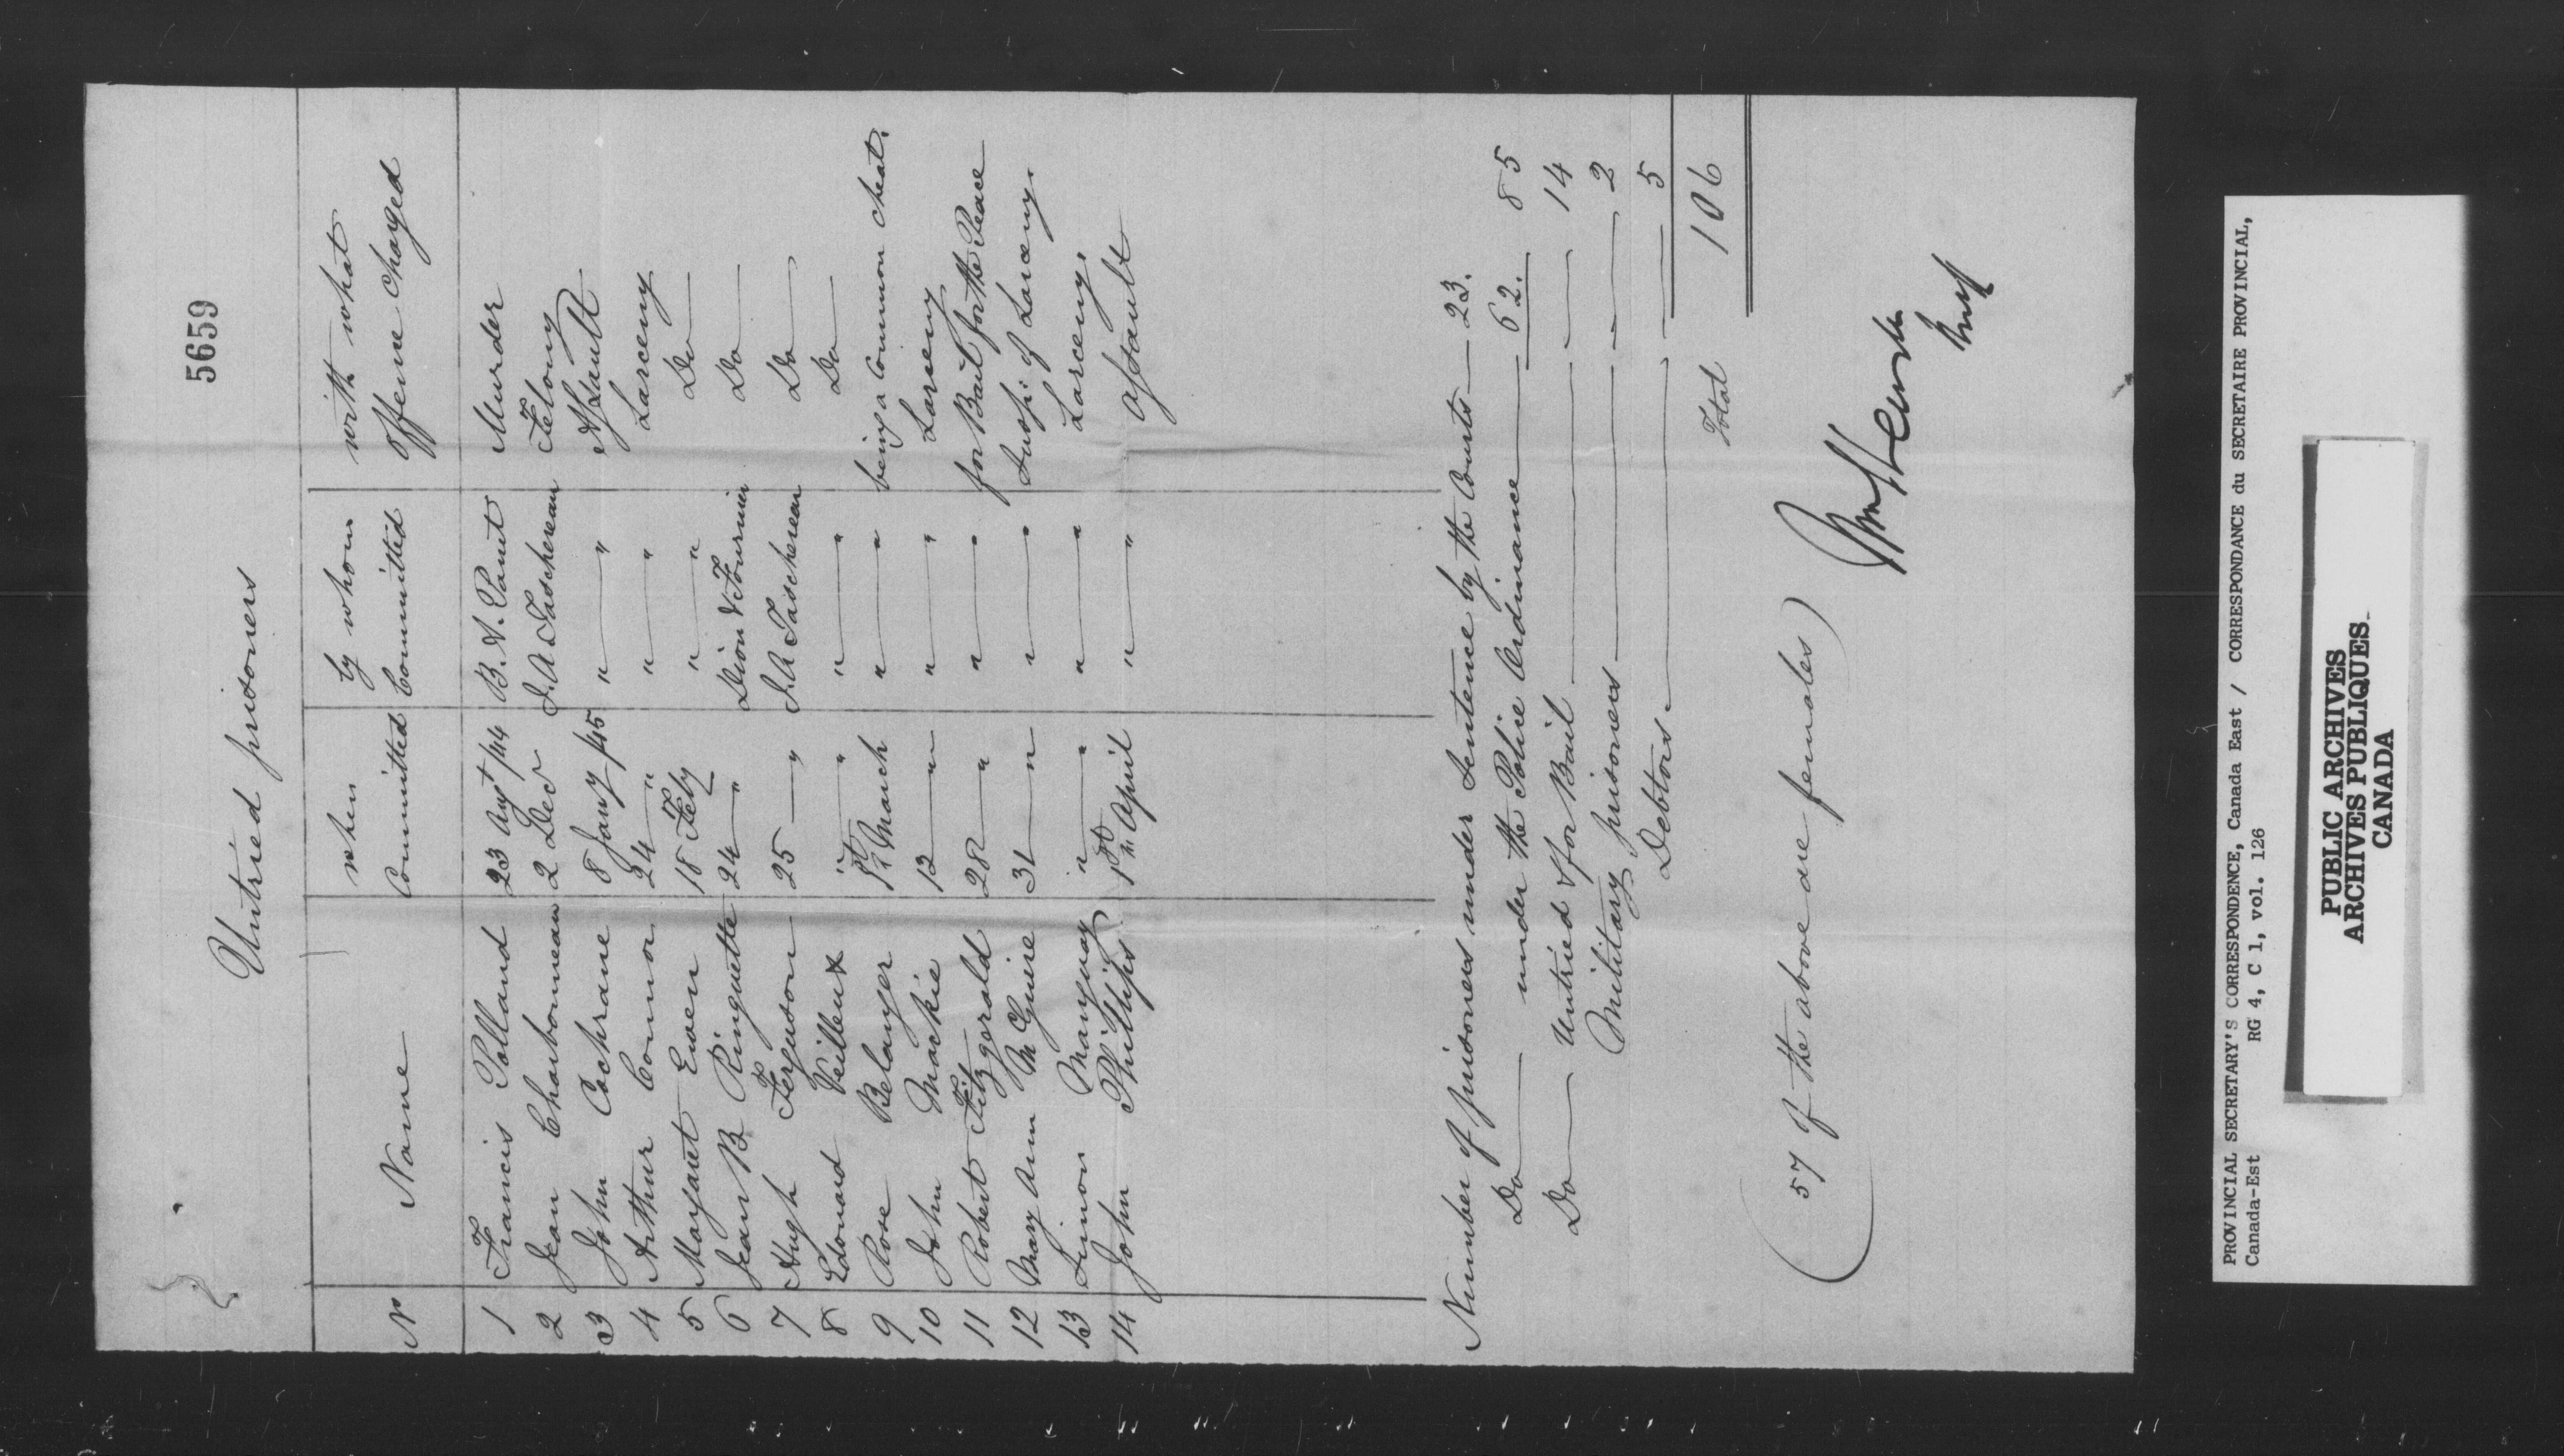 5659
Untried prisoners
No Name when Committed by whom Committed with what offence charged
1 Francis Polland 23 Augt /44 B. A. Panet Murder
2 Jean Charbonneau 2 Decr J. A Taschereau Felony
3 John Cochrane 8 Jany /45 " " Assault
4 Arthur Connor 24 " " " Larceny
5 Margaret Ewen 18 Feby " " Do
6 Jean B Ringuette 24 " Dion & Fournier Do
7 Hugh Ferguson 25 " J. A Taschereau Do
8 Edouard Veilleux " " " " Do
9 Rose Belanger 1st March " " being a Common cheat.
10 John Mackie 12 " " " Larceny
11 Robert Fitzgerald 28 " " " for Bail for the Peace
12 Mary Ann McGuire 31 " " " Susp: of Larceny.
13 Simon Manguay " " " " Larceny.
14 John Phillips 1st April " " Assault
Number of prisoners under Sentence by the Courts 23.
Do under the Police Ordinance 62. 85
Do Untried & for Bail 14
Military prisoners 2
Debtors 5
Total 106
(57 of the above are females)
PROVINCIAL SECRETARY'S CORRESPONDENCE, Canada East / CORRESPONDANCE du SECRETAIRE PROVINCIAL,
Canada-Est RG 4, C 1, vol. 126
PUBLIC ARCHIVES
ARCHIVES PUBLIQUES
CANADA